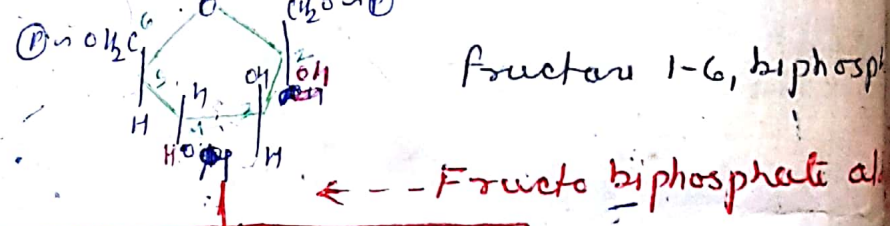 O
CH2O~P
P~OH2C 6
5 2
H OH OH
H
HO H
Fructose 1-6, biphosp
← - - Fructo biphosphate al